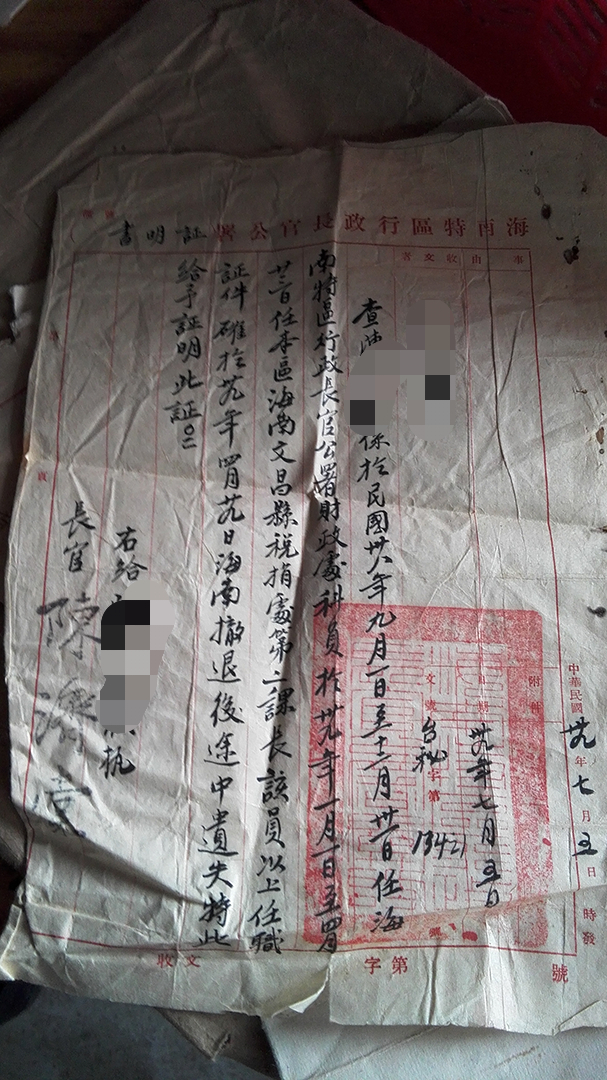 海南特區行政長官公署証明書
事由 收文者
附件
中華民國卅九年七月五日時發
卅九年七月五日
文號台秘字第 號
查
係於民國卅八年九月一日至十二月卅一日任海
南特區行政長官公署財政處科員於卅九年一月一日至四月
日任本區海南文昌縣稅捐處第二課長該員以上任職
証件確於卅九年四月 日海南撤退後途中遺失特此
給予証明此証
右給
執
長官 陳濟棠
收文 字第 號